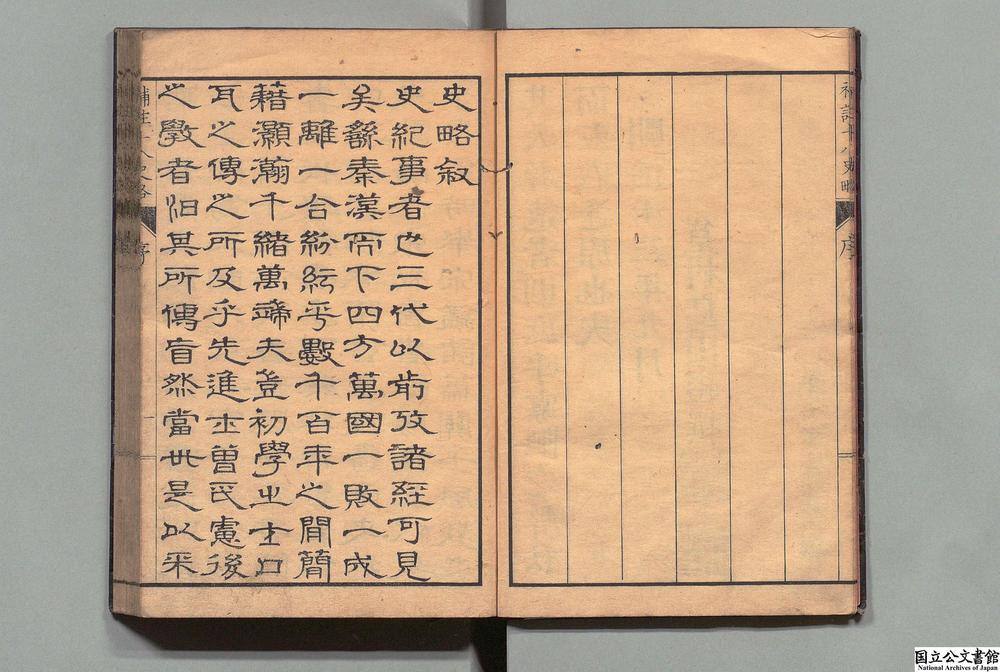 史略叙
史紀事者也三代以前攷諸經可見
矣繇秦漢而下四方萬國一敗一成
一離一合紛紜乎數千百年之間簡
藉灝瀚千緒萬端夫豈初學之士口
耳之傳之所及乎先進士曾氏慮後
之學者汩其所傳盲然當世是以采
補註十八史略
序
補註十八史略
序
国立公文書館
National Archives of Japan